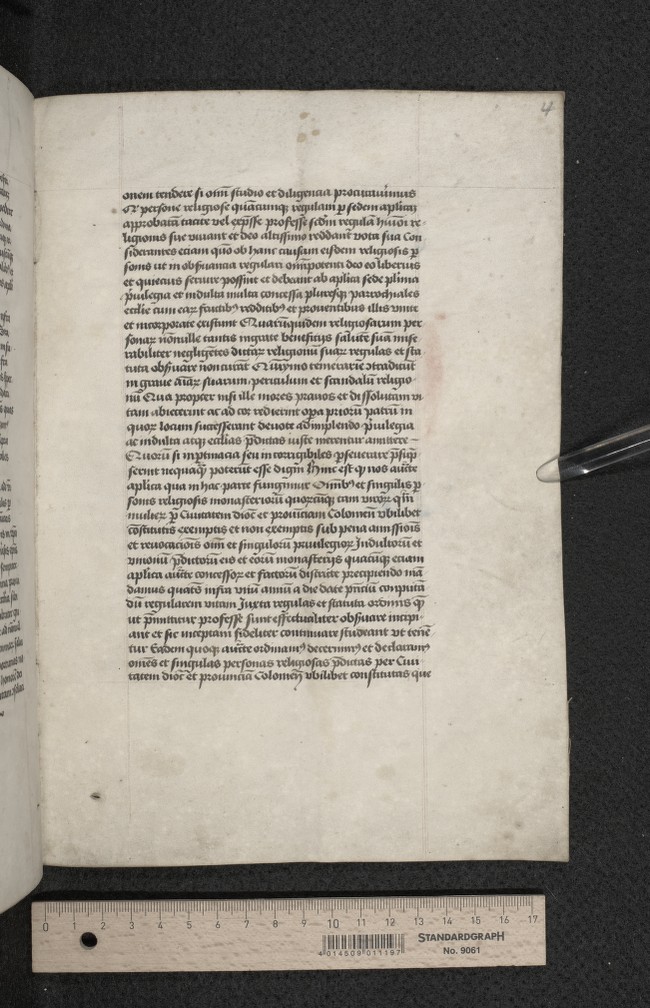 4
onem tendere si om̄i studio et diligencia procurauimus
Ut persone religiose quācumq; regulam ꝑ sedem aplicā
approbatā tacite vel exp̄sse professe scdm̄ regulā hmōi re
ligionis sue viuant et deo altissimo reddant vota sua Con
siderantes eciam quō ob hanc causam eisdem religiosis ꝑ
sonis ut in obs̄uancia regulari om̄ipotenti deo eo liberius
et quiecius seruire possint et debeant ab aplica sede p̄lima
p̄uilegia et indulta multa concessa pluresq; parrochiales
ecclīe cum earꝝ fructibꝫ redditibꝫ et prouentibus illis vnite
et incorporate existunt Quarūquidem religiosarum per
sonarꝝ nōnulle tantis ingrate beneficijs salutē suā mise
rabiliter negligētes dictarꝝ religionū suarꝝ regulas et sta
tuta obs̄uare non curāt Quīymo temerarie ↄtradicūt
in graue aīarꝝ suarum periculum et scandalū religio
nū Qua propter nisi ille mores prauos et dissolutam vi
tam abiecerint ac ad cor redierint opa priorū patrū in
quorꝝ locum successerant deuote adimplendo p̄uilegia
ac indulta atqꝫ ecclīas p̄dictas iuste merentur amittere
Quorū si in ꝑtinacia seu incorrigibiles ꝑseuerare p̄sūp
serint nequaq̄ poterūt esse digni Hinc est ꝙ nos auctē
aplica qua in hac parte fungimur Om̄ibꝫ et singulis ꝑ
sonis religiosis monasteriorū quorūcūqꝫ tam virorꝝ q̄m
mulierꝝ ꝑ Ciuitatem dioc̄ et prouinciam Colonien̄ vbilibet
cōstitutis exemptis et non exemptis sub pena amissiōis
et reuocaciōis oīm et singulorū priuilegiorꝝ Indultorū et
vnionū p̄dictorū eis et eorū monasterijs quacūqꝫ eciam
aplica auctē concessorꝝ et factorū districte precipiendo mā
damus quatōs infra vnū annū a die date p̄nciū conputā
dū regularem vitam Juxta regulas et statuta ordinis qꝫ
ut p̄mittitur professe sunt effectualiter obs̄uare incipi
ant et sic inceptam fideliter continuare studeant vt tenē
tur Eadem quoqꝫ auctē ordinamꝰ decernimꝰ et declaramꝰ
omēs et singulas personas religiosas p̄dictas per Ciui
tatem dioc̄ et prouincia Colonien̄ vbilibet constitutas que
0 1 2 3 4 5 6 7 8 9 10 11 12 13 14 15 16 17
STANDARDGRAPH
No. 9061
4 014509 011197